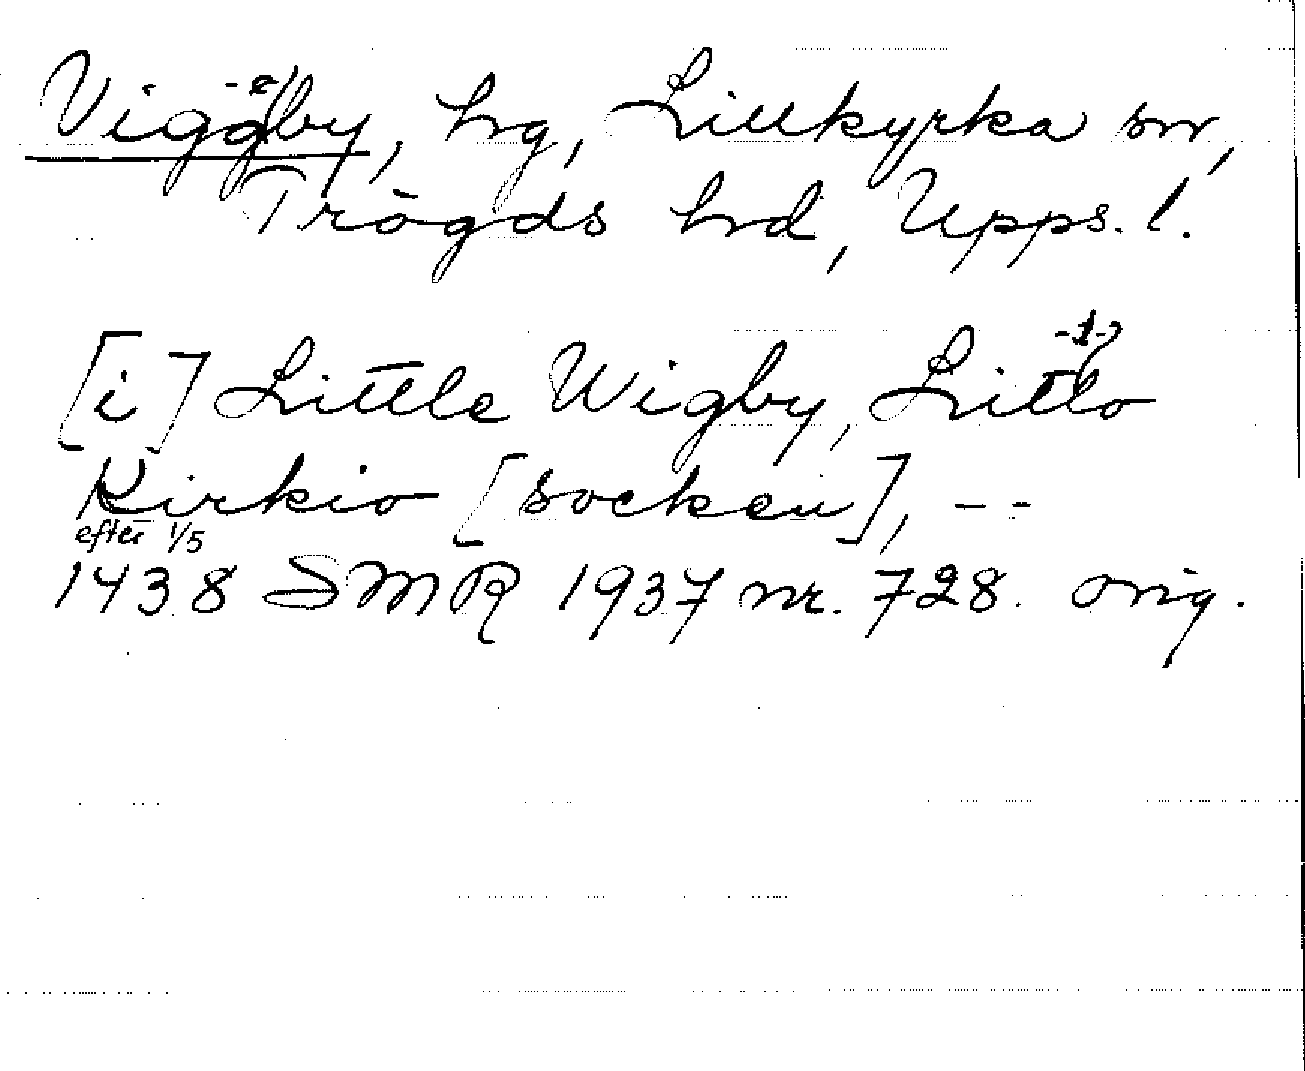 Viggeby, hg, Lillkyrka sn,
Trögds hd, Upps. l.
[i] Little Wigby, Litlo
Kirkio [socken], --
efter 1/5
1438 SMR 1937 nr. 728. orig.